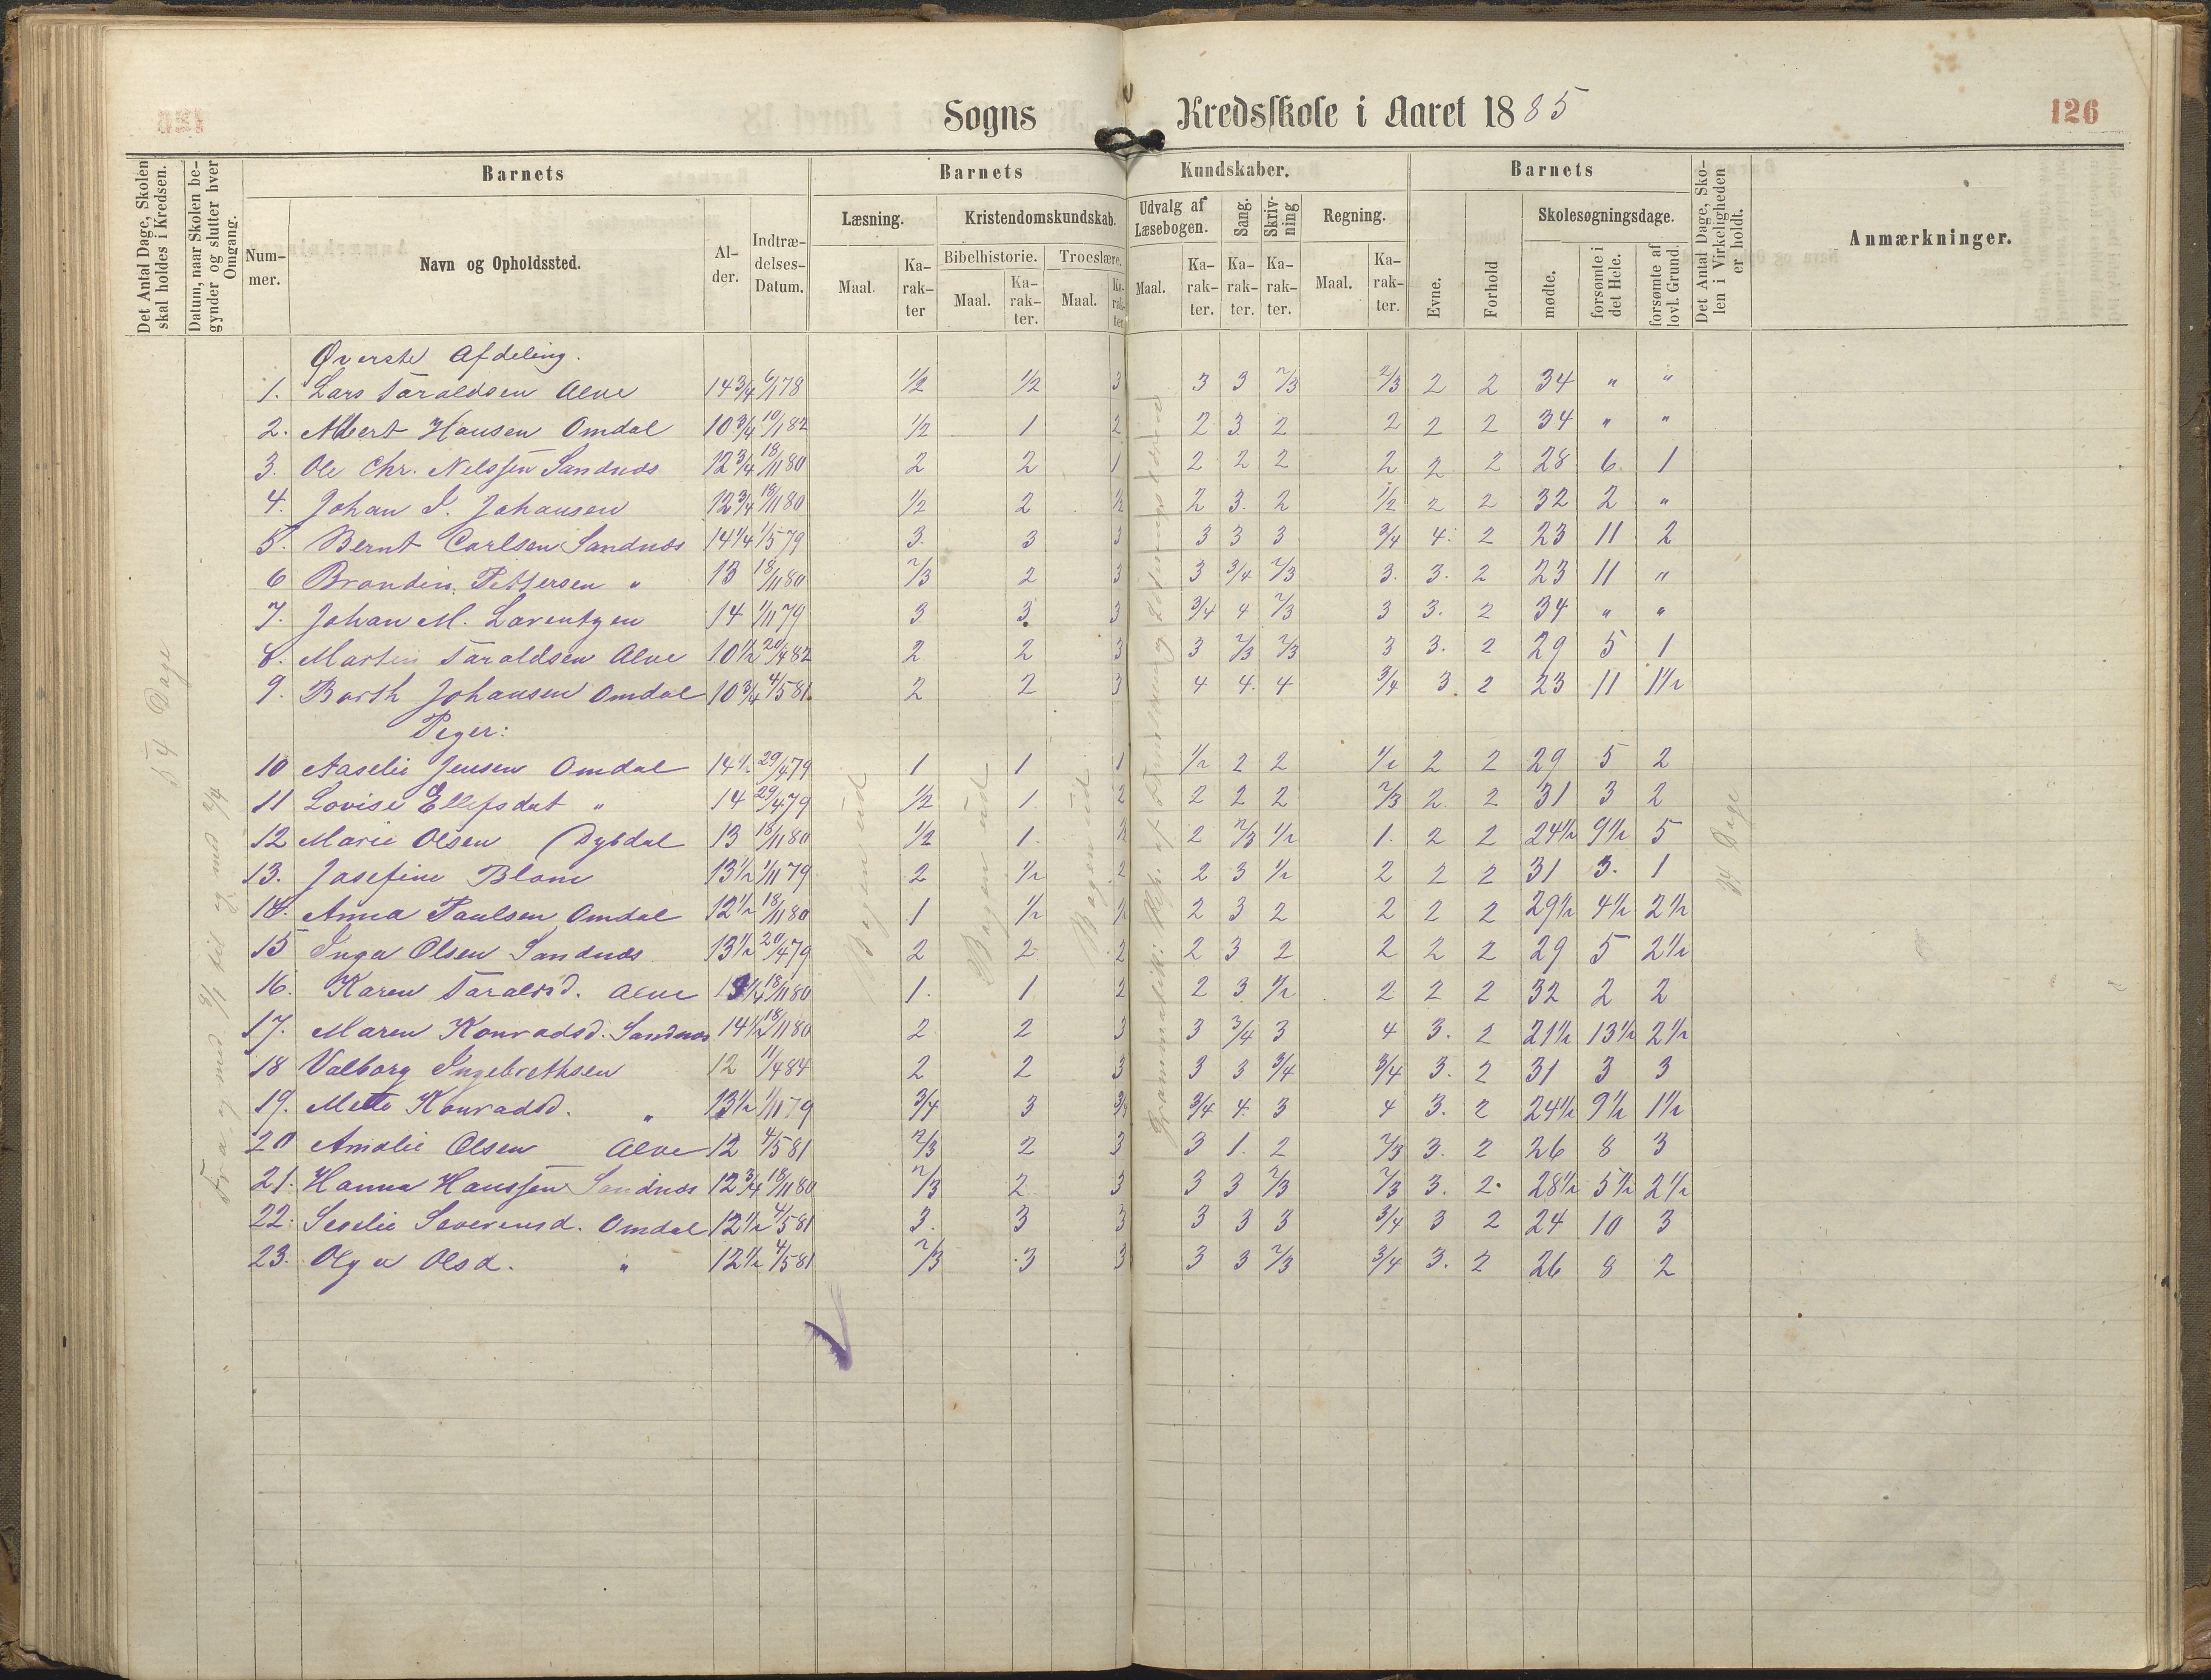 Sogns Kredsskole i Aaret 1885 126
Det Antal Dage, Skolen skal holdes i Kredsen.
Datum, naar Skolen begynder og slutter hver Omgang.
Barnets Barnets Kundskaber. Barnets
Det Antal Dage, Skolen i Virkeligheden er holdt.
Anmærkninger.
Nummer. Navn og Opholdssted. Alder. Indtrædelses-Datum.
Læsning. Kristendomskundskab. Udvalg af Læsebogen. Sang. Skrivning Regning. Evne. Forhold Skolesøgningsdage.
Bibelhistorie. Troeslære.
Maal. Karakter Maal. Karakter. Maal. Karakter Maal. Karakter. Karakter. Karakter. Maal. Karakter. mødte. forsømte i det Hele. forsømte af lovl. Grund.
54 Dage
Fra og med 9/1 til og med 9/4
Bogen ud
Bogen ud
Bogen ud
34 Dage
Øverste Afdeling.
1. Lars Taraldsen Alve 14 3/4 6/1 78 1/2 1/2 3 3 3 2/3 2/3 2 2 34 " "
2. Albert Hansen Omdal 10 3/4 10/1 82 1/2 1 2 2 3 2 2 2 2 34 " "
3. Ole Chr. Nelssen Sandnæs 12 3/4 18/11 80 2 2 1 2 2 2 2 2 2 28 6 1
4. Johan I. Johansen 12 3/4 18/11 80 1/2 2 1/2 2 3. 2 1/2 2 2 32 2 "
5. Bernt Carlsen Sandnæs 14 1/4 1/5 79 3. 3 3 3 3 3 3/4 4. 2 23 11 2
6 Brandin Pettersen " 13 18/11 80 2/3 2 3 3 3/4 2/3 3. 3. 2 23 11 "
7. Johan M. Larentzen 14 1/11 79 3 3 3 3/4 4 2/3 3 3. 2 34 " "
8. Martin Taraldsen Alve 10 1/2 20/4 82 2 2 3 3 2/3 2/3 3 3. 2 29 5 1
9. Barth Johansen Omdal 10 3/4 4/5 81. 2 2 3 4 4. 4 3/4 3. 2 23 11 1 1/2
Piger:
10 Aaselie Jensen Omdal 14 1/2 29/4 79 1 1 1 1/2 2 2 1/2 2 2 29 5 2
11 Lovise Ellefsdat " 14 29/4 79 1/2 1 2 2 2 2 2/3 2. 2 31 3 2
12 Marie Olsen Dybdal 13 18/11 80 1/2 1. 1/2 2 2/3 1/2 1. 2 2 24 1/2 9 1/2 5
13. Josefine Blom 13 1/2 1/11 79 2 1/2 2 2 3 1/2 2 2 2 31 3. 1
14. Anna Paulsen Omdal 12 1/2 18/11 80 1 1/2 1/2 2 3 2 2 2 2 29 1/2 4 1/2 2 1/2
15 Inga Olsen Sandnæs 13 1/2 20/4 79 2 2 2 2 3 2 2 2 2 29 5 2 1/2
16. Karen Taraldsd. Alve 18/11 80 1. 1 2 2 3 1/2 2 2 2 32 2 2
17. Maren Konradsd. Sandnæs 14 1/2 18/11 80 2 2 3 3 3/4 3 4 3. 2 21 1/2 13 1/2 2 1/2
18 Valborg Ingebrethsen 12 11/4 84 2 2 3 3 3 3/4 3/4 3. 2 31 3 3
19. Mette Konradsd. " 13 1/2 1/11 79 3/4 3 3/4 3/4 4. 3 4 3. 2 24 1/2 9 1/2 1 1/2
20 Amalie Olsen Alve 12 4/5 81 2/3 2 3 3 1. 2 2/3 3. 2 26 8 3
21. Hanna Hanssen Sandnæs 12 3/4 18/11 80 2/3 2 3 3 3 2/3 2/3 3. 2. 28 1/2 5 1/2 2 1/2
22. Seselie Severinsd. Omdal 12 1/2 4/5 81 3. 3 3 3 3 3 3/4 3 2 24 10 3
23. Olga Olsd. " 12 1/2 4/5 81 2/3 3 3 3 3 2/3 3/4 3. 2 26 8 2